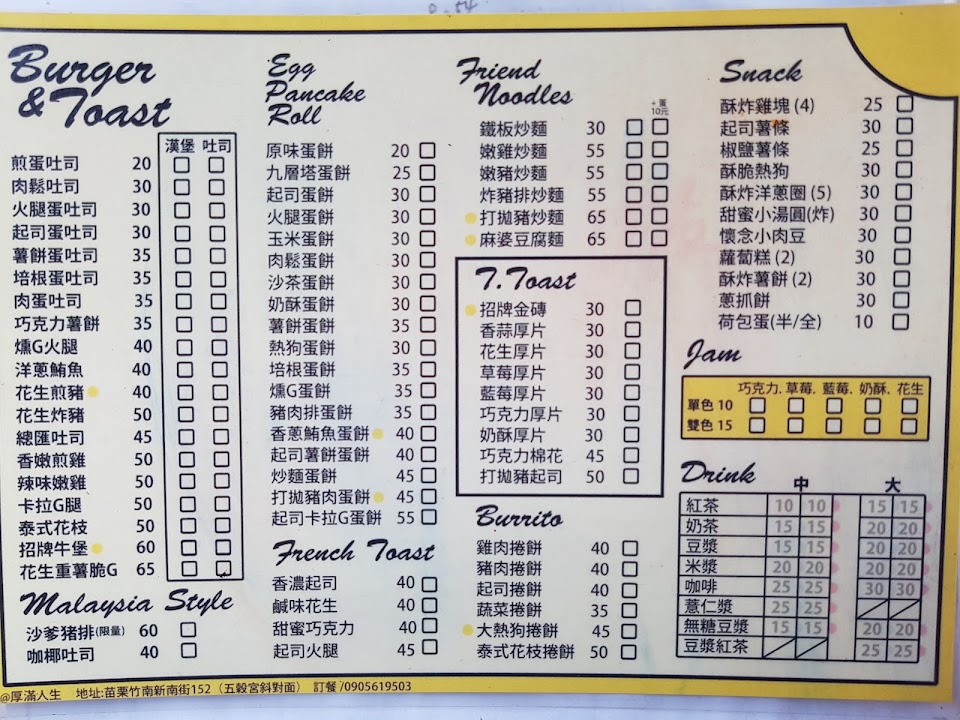 Burger
& Toast
漢堡 吐司
煎蛋吐司 20
肉鬆吐司 30
火腿蛋吐司 30
起司蛋吐司 30
薯餅蛋吐司 35
培根蛋吐司 35
肉蛋吐司 35
巧克力薯餅 35
燻G火腿 40
洋蔥鮪魚 40
花生煎豬 40
花生炸豬 50
總匯吐司 45
香嫩煎雞 50
辣味嫩雞 50
卡拉G腿 50
泰式花枝 50
招牌牛堡 60
花生重薯脆G 65
Malaysia Style
沙爹豬排(限量) 60
咖椰吐司 40
Egg
Pancake
Roll
原味蛋餅 20
九層塔蛋餅 25
起司蛋餅 30
火腿蛋餅 30
玉米蛋餅 30
肉鬆蛋餅 30
沙茶蛋餅 30
奶酥蛋餅 30
薯餅蛋餅 35
熱狗蛋餅 30
培根蛋餅 35
燻G蛋餅 35
豬肉排蛋餅 35
香蔥鮪魚蛋餅 40
起司薯餅蛋餅 40
炒麵蛋餅 45
打拋豬肉蛋餅 45
起司卡拉G蛋餅 55
French Toast
香濃起司 40
鹹味花生 40
甜蜜巧克力 40
起司火腿 45
Friend
Noodles
+蛋
10元
鐵板炒麵 30
嫩雞炒麵 55
嫩豬炒麵 55
炸豬排炒麵 55
打拋豬炒麵 65
麻婆豆腐麵 65
T.Toast
招牌金磚 30
香蒜厚片 30
花生厚片 30
草莓厚片 30
藍莓厚片 30
巧克力厚片 30
奶酥厚片 30
巧克力棉花 45
打拋豬起司 50
Burrito
雞肉捲餅 40
豬肉捲餅 40
起司捲餅 40
蔬菜捲餅 35
大熱狗捲餅 45
泰式花枝捲餅 50
Snack
酥炸雞塊 (4) 25
起司薯條 30
椒鹽薯條 25
酥脆熱狗 30
酥炸洋蔥圈 (5) 30
甜蜜小湯圓(炸) 30
懷念小肉豆 30
蘿蔔糕 (2) 30
酥炸薯餅 (2) 30
蔥抓餅 30
荷包蛋(半/全) 10
Jam
巧克力. 草莓. 藍莓. 奶酥. 花生
單色 10
雙色 15
Drink 中 大
紅茶 10 10 15 15
奶茶 15 15 20 20
豆漿 15 15 20 20
米漿 20 20 25 25
咖啡 25 25 30 30
薏仁漿 25 25
無糖豆漿 15 15 20 20
豆漿紅茶 25 25
@厚滿人生 地址:苗栗竹南新南街152（五穀宮斜對面） 訂餐/0905619503